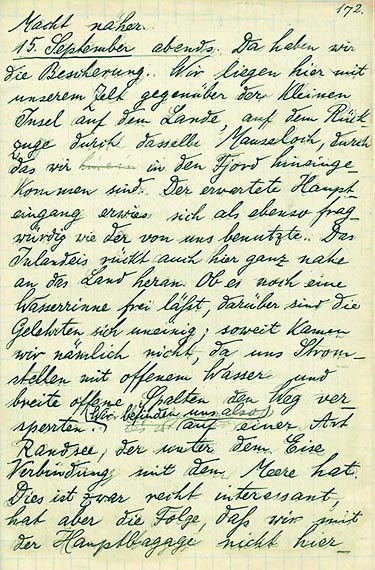 172.
Macht näher.
15. September abends. Da haben wir
die Bescherung. Wir liegen hier mit
unserem Zelt gegenüber der kleinen
Insel auf dem Lande, auf dem Rück
zuge durch dasselbe Mauseloch, durch
das wir hinein in den Fjord hineinge-
kommen sind. Der erwartete Haupt-
eingang erwies sich als ebenso frag-
würdig wie der von uns benutzte. Das
Inlandeis rückt auch hier ganz nahe
an das Land heran. Ob es noch eine
Wasserrinne frei läßt, darüber sind die
Gelehrten sich uneinig; soweit kamen
wir nämlich nicht, da uns Strom-
stellen mit offenem Wasser und
breite offene Spalten den Weg ver
sperrten. (Wir befinden uns also)
auf einer Art
Randsee, der unter dem Eise
Verbindung mit dem Meere hat.
Dies ist zwar recht interessant,
hat aber die Folge, daß wir mit
der Hauptbagage nicht hier